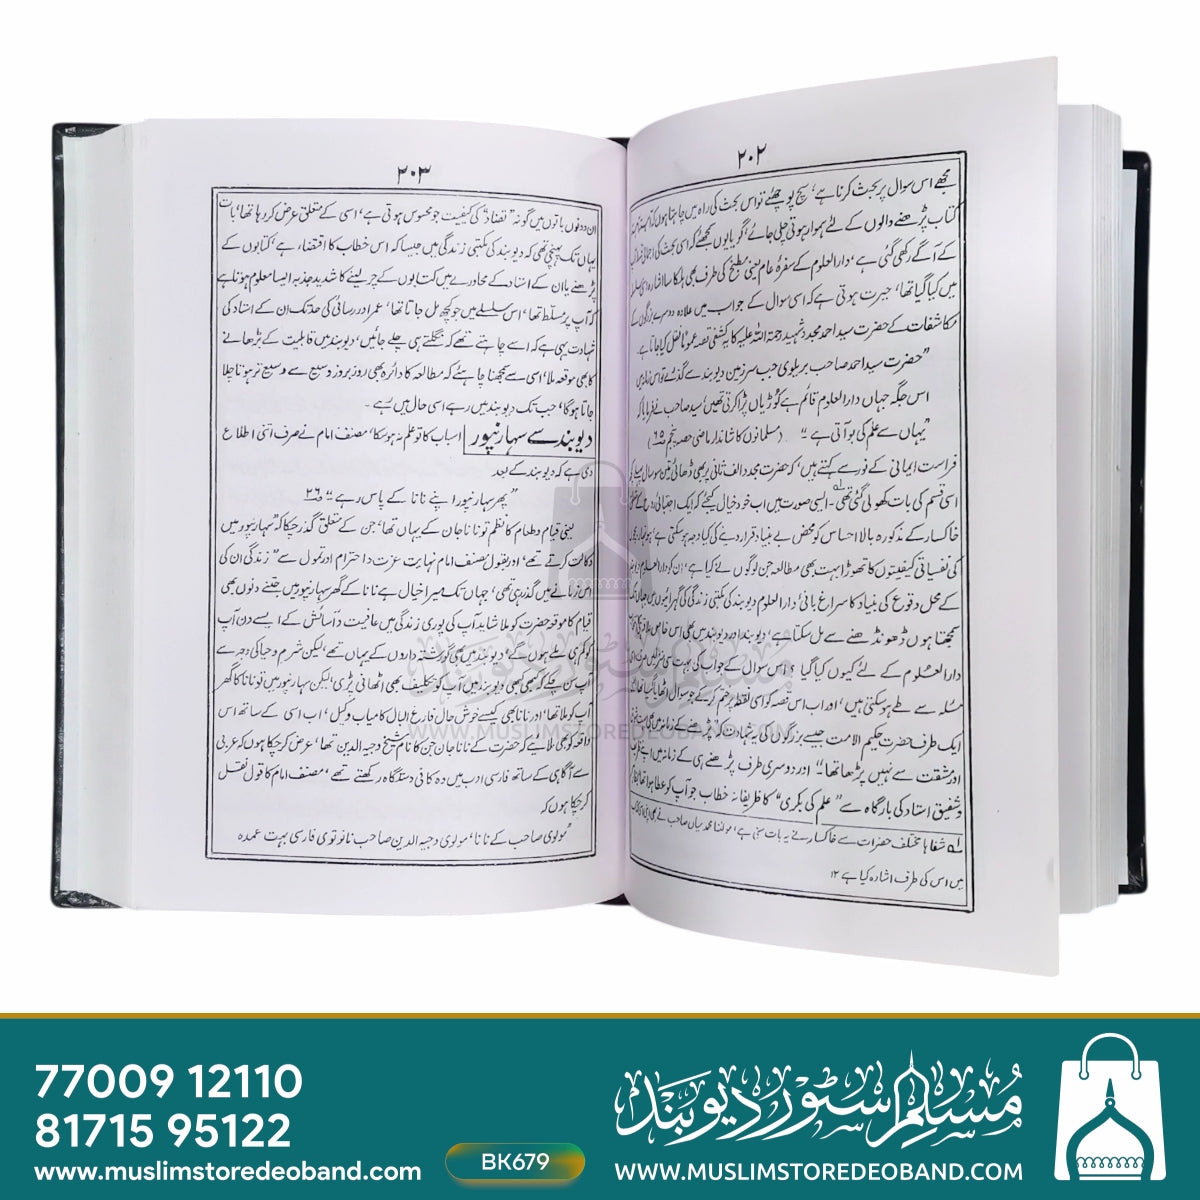 ۲۰۲
مجھے اس سوال پر بحث کرنا ہے، سچ پوچھئے تو اس بحث کی راہ میں چاہتا ہوں کہ
کتاب پڑھنے والوں کے لئے ہموار ہوتی چلی جائے، گر یا یوں سمجھئے کہ اسی بحث کی اجمالی
کے آگے رکھی گئی ہے، دارالعلوم کے سفرۂ عام یعنی مطبخ کی طرف بھی ہلکا سا اشارہ اسی سلسلہ
میں کیا گیا تھا، حیرت ہوتی ہے کہ اسی سوال کے جواب میں علاوہ دوسرے بزرگوں کے
مکاشفات کے حضرت سید احمد مجدد شہید رحمۃ اللہ علیہ کا یہ کشفی قصہ عموماً نقل کیا جاتا ہے
"حضرت سید احمد صاحب بریلوی جب سرزمین دیوبند سے گذرے تو اس
اس جگہ جہاں دارالعلوم قائم ہے کوڑیاں پڑا کرتی تھیں، سید صاحب نے فرمایا کہ
"یہاں سے علم کی بو آتی ہے" (مسلمانوں کا شاندار ماضی حصہ پنجم ص۶۵)
فراست ایمانی کے نور سے کہتے ہیں، کہ حضرت مجدد الف ثانی پر بھی ڈھائی تین سو سال پہلے
اسی قسم کی بات کھولی گئی تھی۔ ایسی صورت میں اب خود خیال کیجئے کہ ایک اجتماعی
خاکسار کے مذکورہ بالا احساس کو محض بے بنیاد قرار دینے کی کیا وجہ ہو سکتی ہے
کی نفسیاتی کیفیتوں کا تھوڑا بہت بھی مطالعہ جن لوگوں نے کیا ہے، ان کو دارالعلوم
کے محل وقوع کی بنیاد کا سراغ بانیٔ دارالعلوم دیوبند کی مکتبی زندگی کی گہرائیوں میں جہاں تک
سمجھتا ہوں ڈھونڈھنے سے مل سکتا ہے، دیوبند اور دیوبند میں بھی اس خاص
دارالعلوم کے لئے کیوں کیا گیا؟ اس سوال کے جواب کی بہت سی منزلیں
مسئلہ سے طے ہو سکتی ہیں، اور اب اس قصہ کو اسی نقطہ پر ختم کر کے جو سوال اٹھایا گیا تھا
ایک طرف حضرت حکیم الامت جیسے بزرگوں کی یہ شہادت کہ "پڑھنے کے زمانہ میں
اور مشقت سے نہیں پڑھا تھا" اور دوسری طرف پڑھنے ہی کے زمانہ میں اپنے
و شفیق استاد کی بارگاہ سے "علم کی بکری" کا ظریفانہ خطاب جو آپ کو عطا ہوا تھا
لہ شفاہاً مختلف حضرات سے خاکسار نے یہ بات سنی ہے، مولٰنا محمد میاں صاحب نے بھی اپنی کتاب
میں اس کی طرف اشارہ کیا ہے ۱۲
۲۰۳
ان دونوں باتوں میں گونہ "تضاد" کی کیفیت جو محسوس ہوتی ہے، اسی کے متعلق عرض کر رہا تھا، بات
یہاں تک پہنچی تھی کہ دیوبند کی مکتبی زندگی میں جیسا کہ اس خطاب کا اقتضاء ہے، کتابوں کے
پڑھنے یا ان کے استاد کے محاورے میں کتابوں کے چر لینے کا شدید جذبہ ایسا معلوم ہوتا ہے
کہ آپ پر مسلط تھا، اس سلسلے میں جو کچھ مل جاتا تھا، عمر اور رسائی کی حد تک ان کے استاد کی
شہادت یہی ہے کہ اسے چاہتے تھے کہ نگلتے ہی چلے جائیں، دیوبند میں قابلیت کے بڑھانے
کا بھی موقعہ ملا، اسی سے سمجھنا چاہئے کہ مطالعہ کا دائرہ بھی روز بروز وسیع سے وسیع تر ہوتا چلا
جاتا ہوگا، جب تک دیوبند میں رہے اسی حال میں رہے۔
دیوبند سے سہارنپور اسباب کا تو علم نہ ہو سکا، مصنف امام نے صرف اتنی اطلاع
دی ہے کہ دیوبند کے بعد
"پھر سہارنپور اپنے نانا کے پاس رہے" ص۲۶
یعنی قیام و طعام کا نظم تو نانا جان کے یہاں تھا، جن کے متعلق گذر چکا کہ "سہارنپور میں
وکالت کرتے تھے" اور بقول مصنف امام نہایت عزت و احترام اور تمول سے "زندگی ان کی
اس زمانے میں گذر رہی تھی، جہاں تک میرا خیال ہے نانا کے گھر سہارنپور میں جتنے دنوں بھی
قیام کا موقعہ حضرت کو ملا شاید آپ کی پوری زندگی میں عافیت و آسائش کے ایسے دن آپ
کو کم ہی ملے ہوں گے، دیوبند میں بھی گو رشتہ داروں کے یہاں تھے، لیکن شرم و حیا کی وجہ سے
آپ سن چکے کہ کبھی کبھی دیوبند میں آپ کو تکلیف بھی اٹھانی پڑی، لیکن سہارنپور میں تو نانا کا گھر
آپ کو ملا تھا، اور نانا بھی کیسے خوش حال فارغ البال کامیاب وکیل، اب اسی کے ساتھ اس
واقعہ کو بھی ملایئے کہ حضرت کے نانا جان جن کا نام شیخ وجیہ الدین تھا، عرض کر چکا ہوں کہ عربی
سے آگاہی کے ساتھ فارسی ادب میں وہ کافی دستگاہ رکھتے تھے، مصنف امام کا قول نقل
کر چکا ہوں کہ
"مولوی صاحب کے نانا، مولوی وجیہ الدین صاحب نانوتوی فارسی بہت عمدہ
مسلم سٹور دیوبند
WWW.MUSLIMSTOREDEOBAND.COM
77009 12110
81715 95122
www.muslimstoredeoband.com
BK679
مسلم سٹور دیوبند
WWW.MUSLIMSTOREDEOBAND.COM